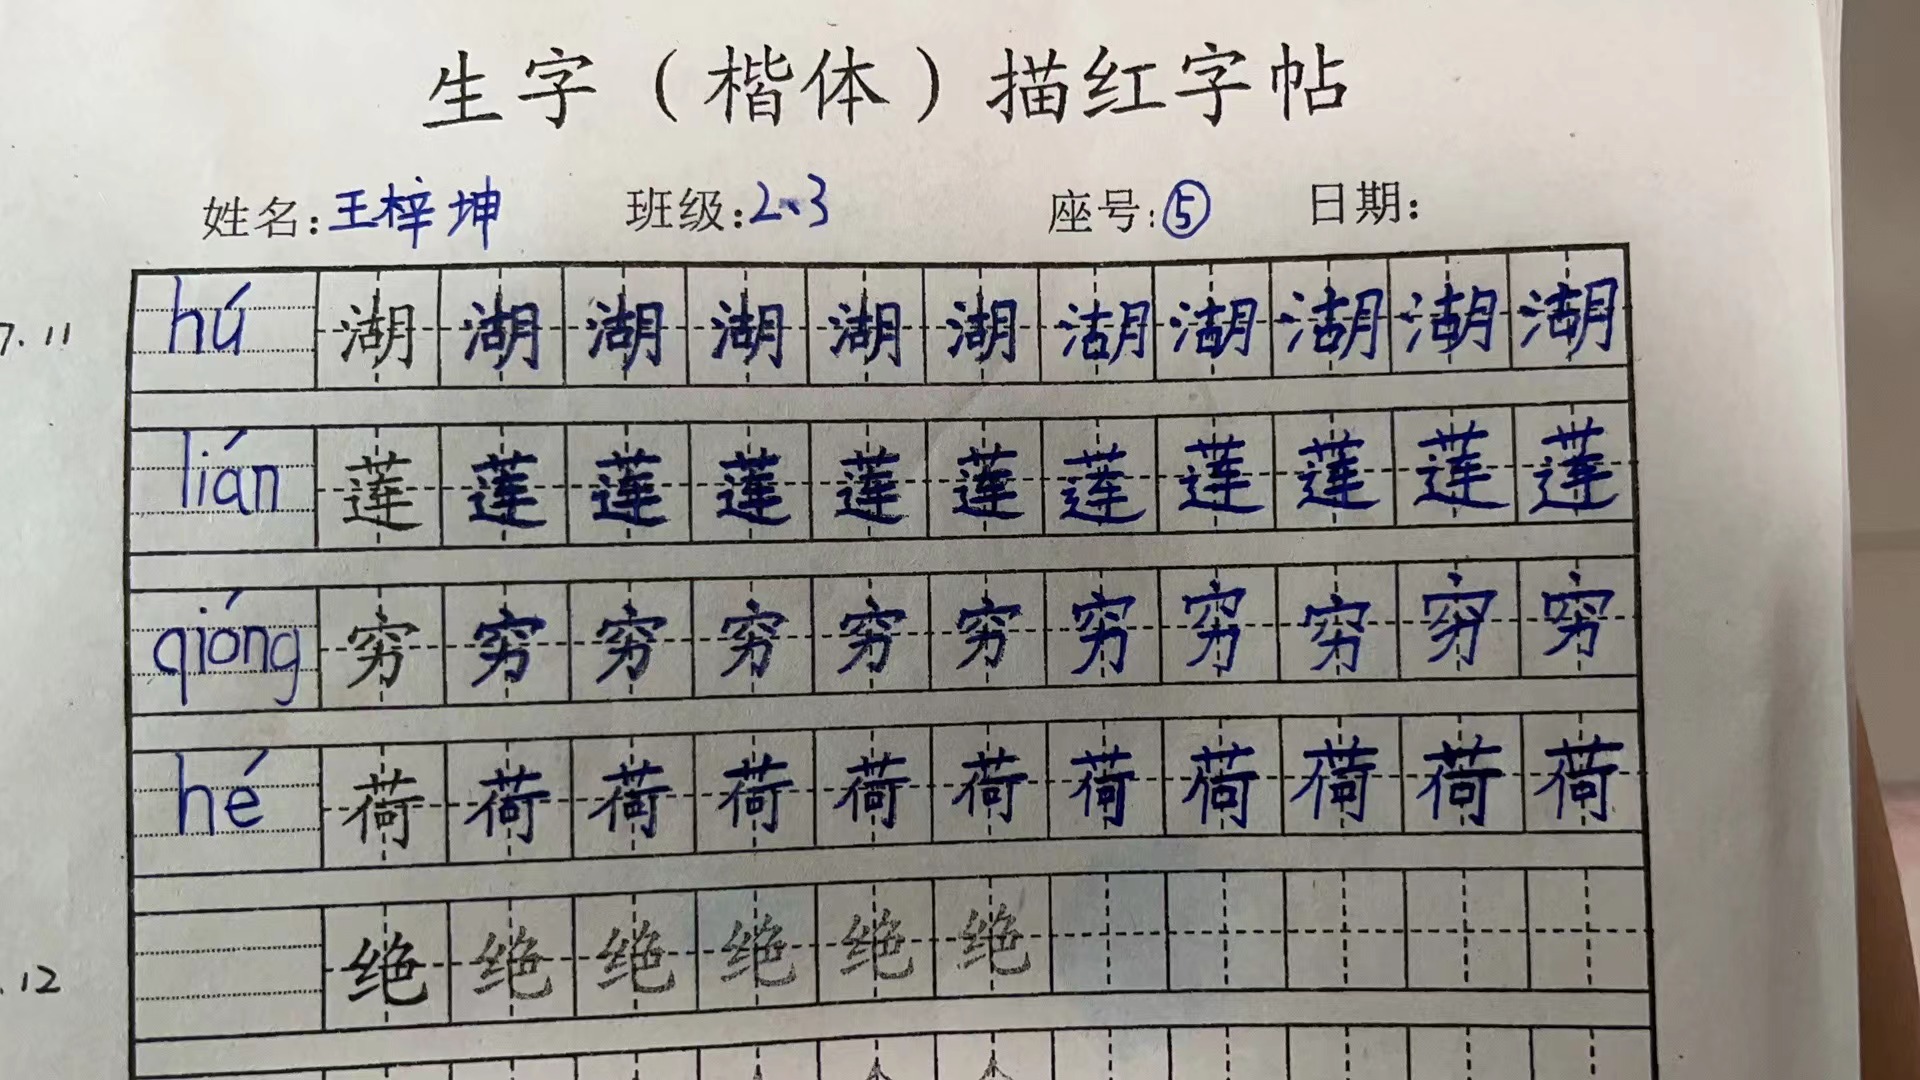 生字（楷体）描红字帖
姓名：王梓坤 班级：2、3 座号：⑤ 日期：
7.11 hú 湖 湖 湖 湖 湖 湖 湖 湖 湖 湖 湖
lián 莲 莲 莲 莲 莲 莲 莲 莲 莲 莲 莲
qióng 穷 穷 穷 穷 穷 穷 穷 穷 穷 穷 穷
hé 荷 荷 荷 荷 荷 荷 荷 荷 荷 荷 荷
.12 绝 绝 绝 绝 绝 绝